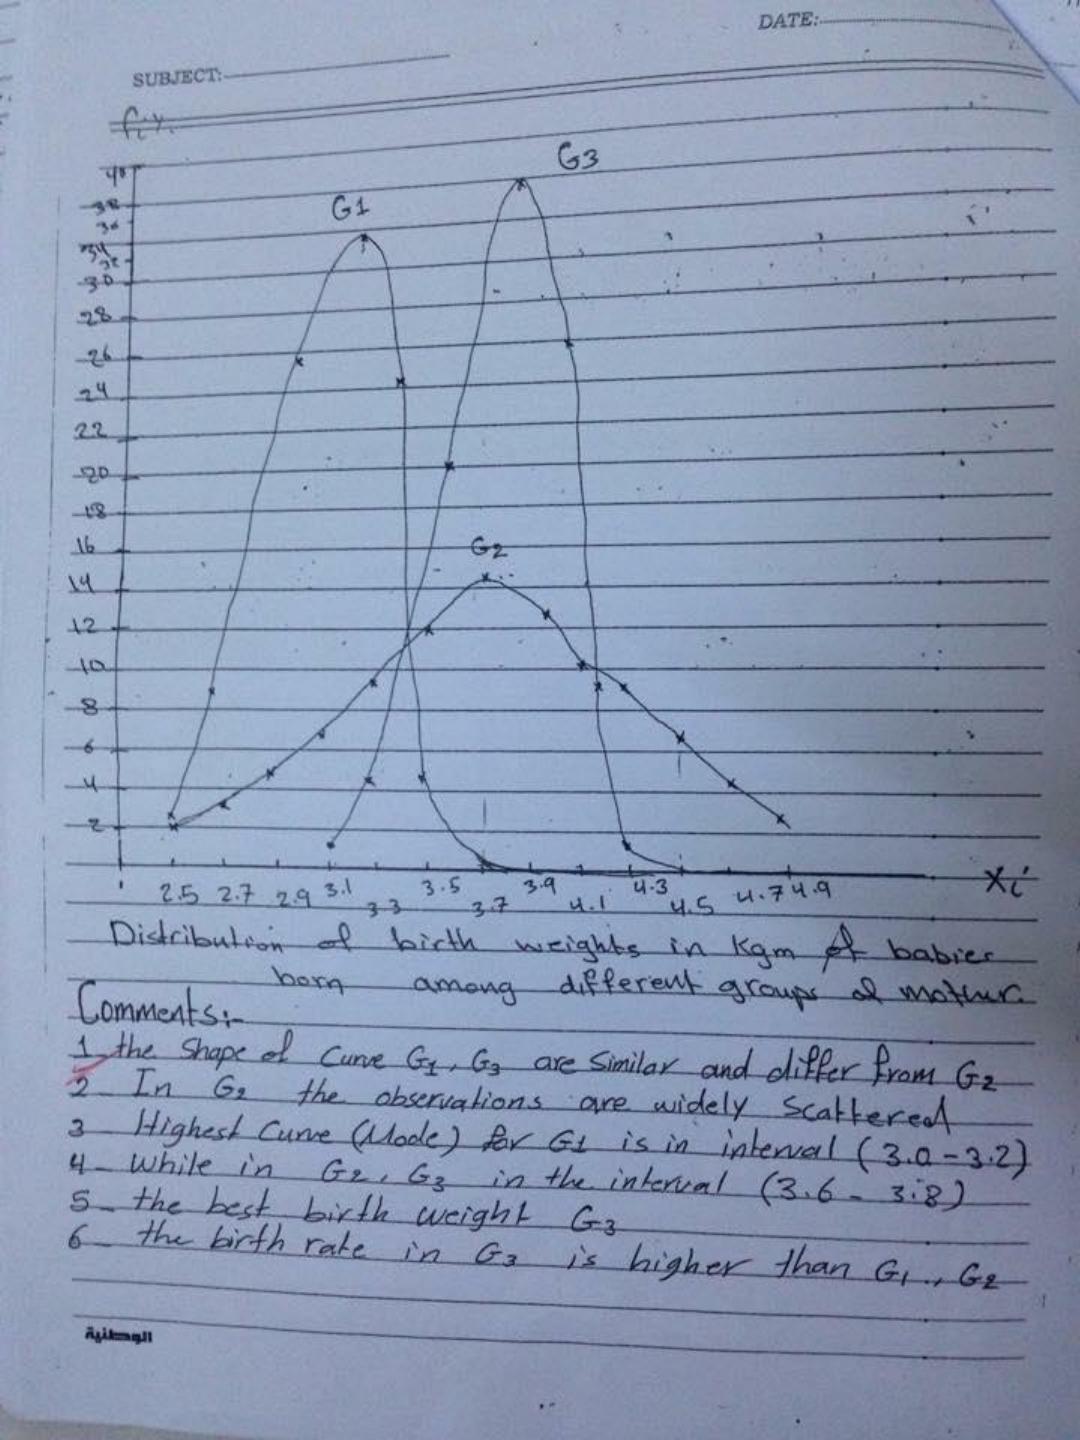 DATE:
SUBJECT:
fi%
40
38
36
34
32
30
28
26
24
22
20
18
16
14
12
10
8
6
4
2
G1
G3
G2
2.5 2.7 2.9 3.1 3.3 3.5 3.7 3.9 4.1 4.3 4.5 4.7 4.9
Xi
Distribution of birth weights in Kgm of babies
born among different groups of mother.
Comments:-
1 the shape of curve G1, G3 are similar and differ from G2
2- In G2 the observations are widely scattered
3 Highest Curve (Mode) for G1 is in interval (3.0-3.2)
4- while in G2, G3 in the interval (3.6 - 3.8)
5- the best birth weight G3
6- the birth rate in G3 is higher than G1, G2
الوطنية